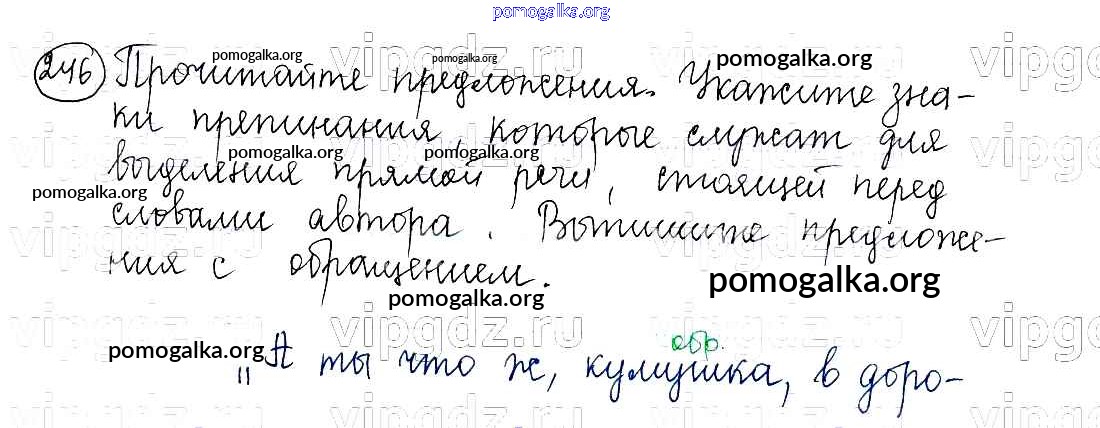 pomogalka.org
246 Прочитайте предложения. Укажите зна-
ки препинания, которые служат для
выделения прямой речи, стоящей перед
словами автора. Выпишите предложе-
ния с обращением.
обр.
„А ты что ж, кулишка, в доро-
pomogalka.org
pomogalka.org
pomogalka.org
pomogalka.org
pomogalka.org
pomogalka.org
pomogalka.org
pomogalka.org
vipgdz.ru
vipgdz.ru
vipgdz.ru
vipgdz.ru
vipgdz.ru
vipgdz.ru
vipgdz.ru
vipgdz.ru